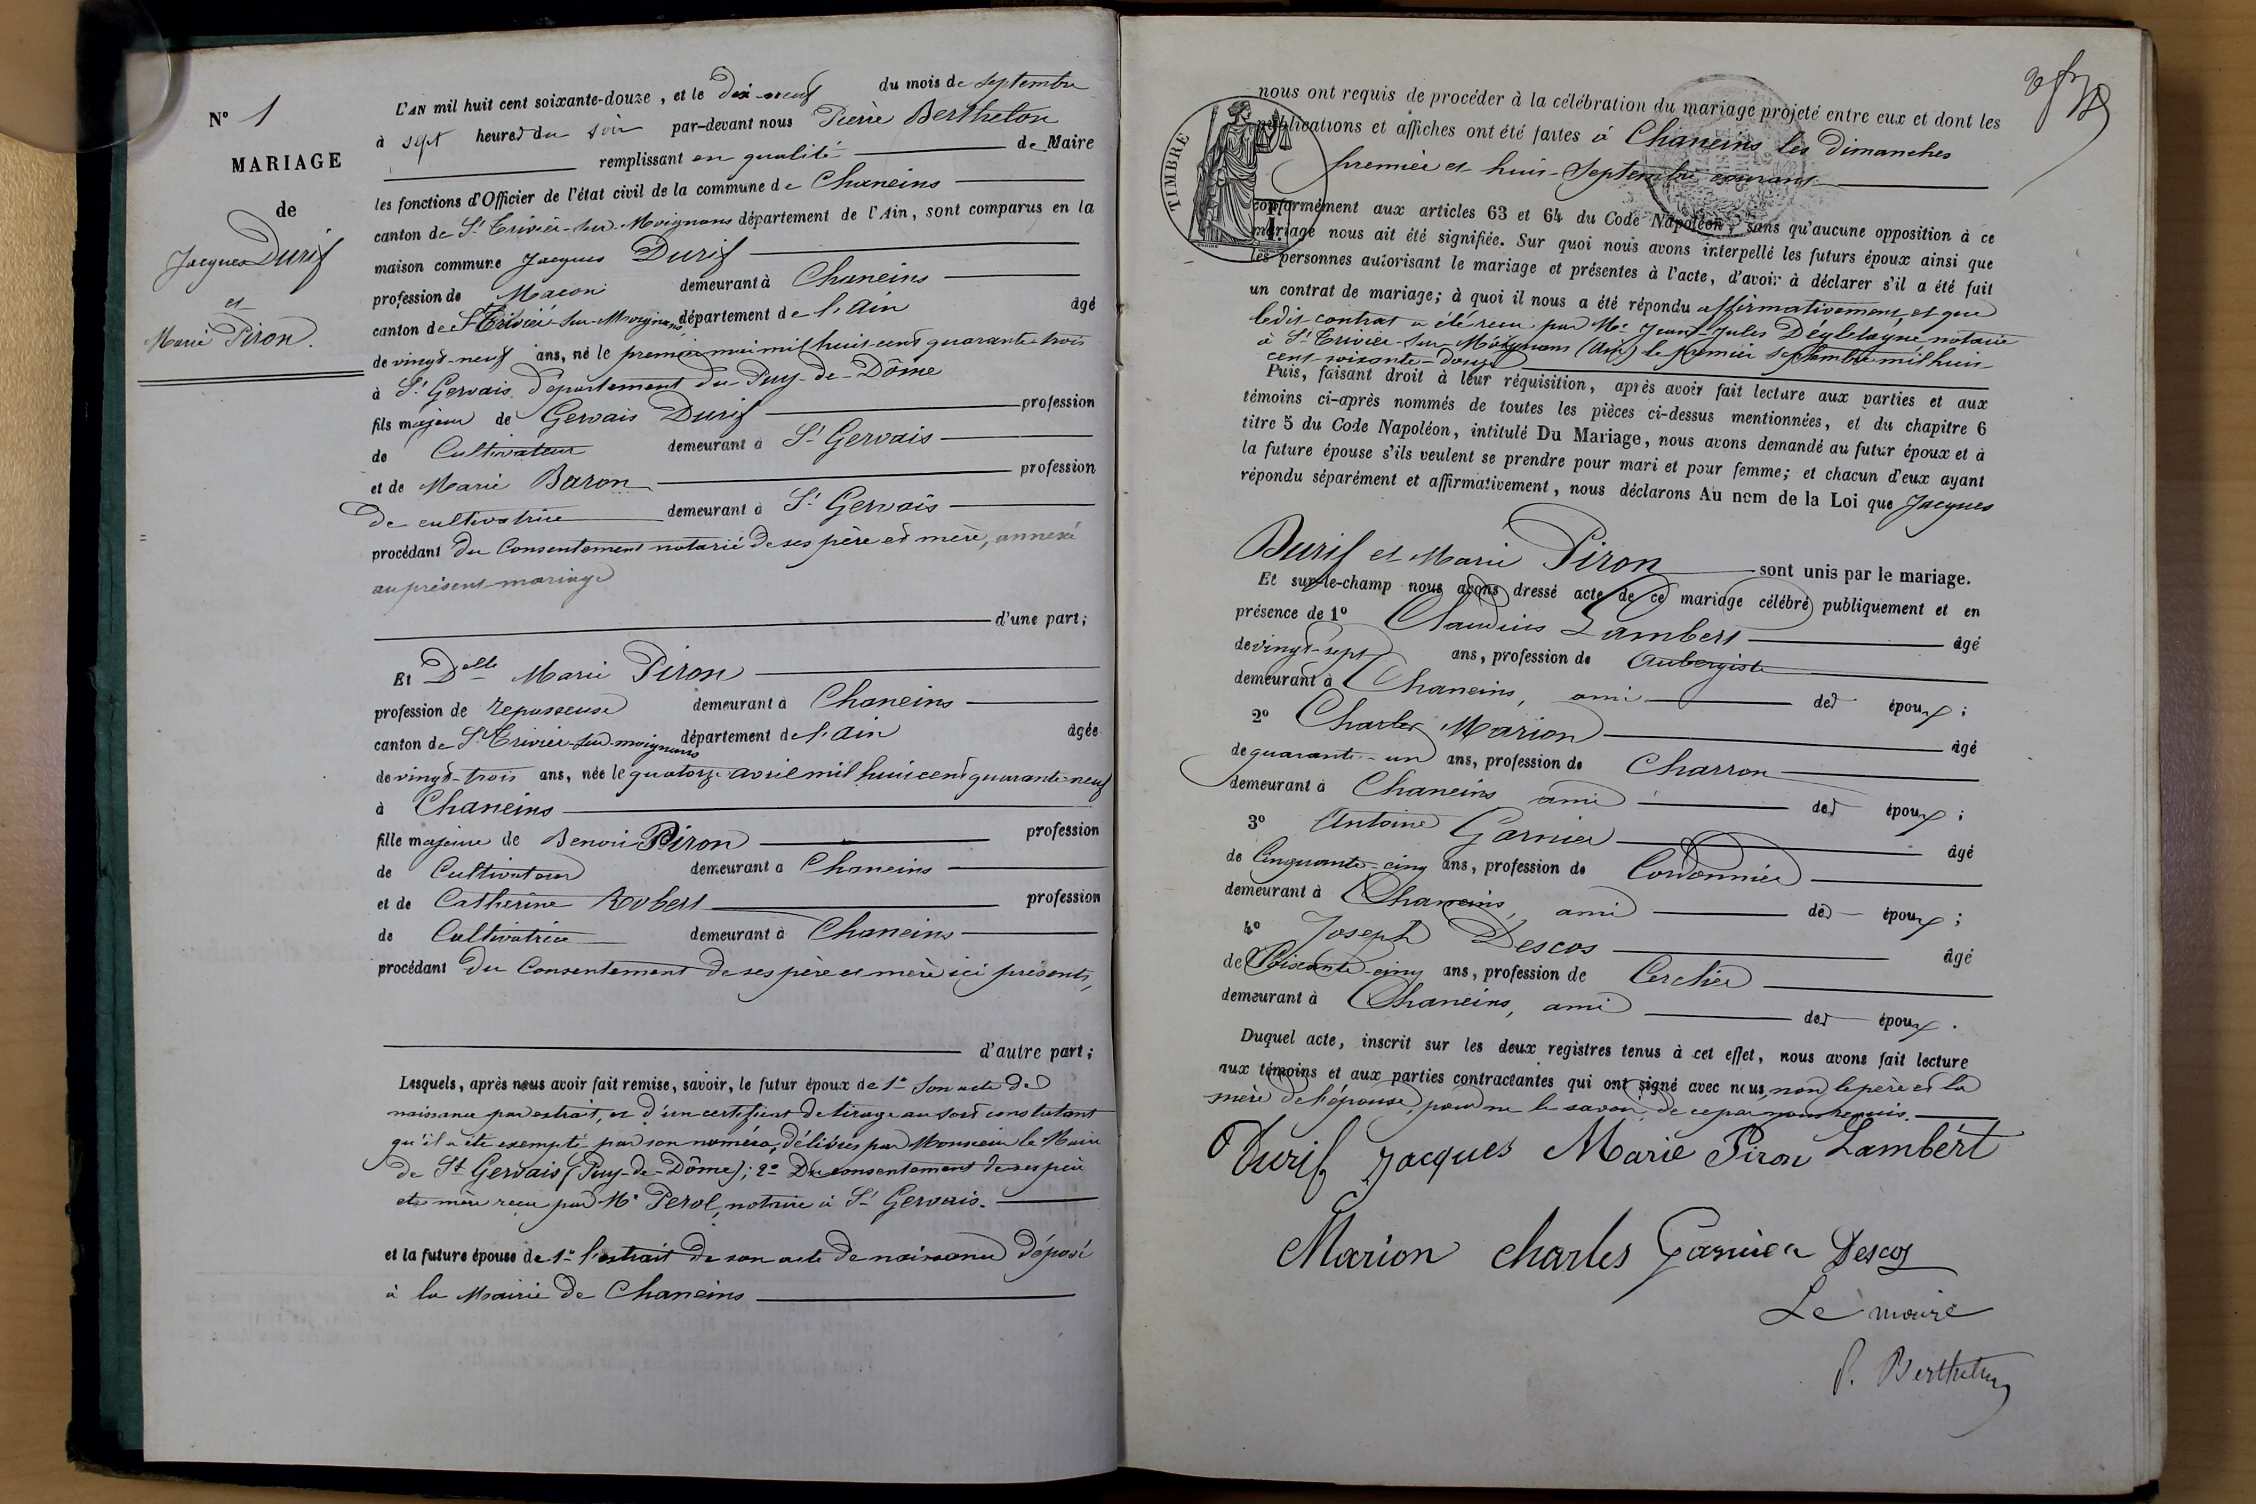 N° 1
MARIAGE
de
Jacques Durif
et
Marie Piron.
L'AN mil huit cent soixante-douze, et le dix-neuf du mois de Septembre
à sept heures du soir par-devant nous Pierre Berthelon
remplissant en qualité de Maire
les fonctions d'Officier de l'état civil de la commune de Chaneins
canton de St Trivier-sur-Moignans département de l'Ain, sont comparus en la
maison commune Jacques Durif
profession de Maçon demeurant à Chaneins
canton de St Trivier-sur-Moignans département de l'Ain âgé
de vingt-neuf ans, né le premier mai mil huit cent quarante-trois
à St Gervais département du Puy-de-Dôme
fils majeur de Gervais Durif profession
de Cultivateur demeurant à St Gervais
et de Marie Baron profession
de cultivatrice demeurant à St Gervais
procédant du Consentement notarié de ses père et mère, annexé
au présent mariage
d'une part;
Et Delle Marie Piron
profession de repasseuse demeurant à Chaneins
canton de St Trivier-sur-moignans département de l'Ain âgée
de vingt-trois ans, née le quatorze avril mil huit cent quarante-neuf
à Chaneins
fille majeure de Benoit Piron profession
de Cultivateur demeurant à Chaneins
et de Catherine Robert profession
de Cultivatrice demeurant à Chaneins
procédant du Consentement de ses père et mère ici présents,
d'autre part;
Lesquels, après nous avoir fait remise, savoir, le futur époux de 1° Son acte de
naissance par extrait, et d'un certificat de tirage au sort constatant
qu'il a été exempté par son numéro, délivrés par Monsieur le Maire
de St Gervais (Puy-de-Dôme); 2° Du consentement de ses père
et mère reçu par Me Perol, notaire à St Gervais.
et la future épouse de 1° l'extrait de son acte de naissance déposé
à la Mairie de Chaneins
nous ont requis de procéder à la célébration du mariage projeté entre eux et dont les
publications et affiches ont été faites à Chaneins les dimanches
premier et huit Septembre courant
TIMBRE
conformément aux articles 63 et 64 du Code Napoléon, sans qu'aucune opposition à ce
mariage nous ait été signifiée. Sur quoi nous avons interpellé les futurs époux ainsi que
les personnes autorisant le mariage et présentes à l'acte, d'avoir à déclarer s'il a été fait
un contrat de mariage; à quoi il nous a été répondu affirmativement, et que
ledit contrat a été reçu par Me Jean-Jules notaire
à St Trivier-sur-Moignans (Ain) le premier septembre mil huit
cent soixante-douze
Puis, faisant droit à leur réquisition, après avoir fait lecture aux parties et aux
témoins ci-après nommés de toutes les pièces ci-dessus mentionnées, et du chapitre 6
titre 5 du Code Napoléon, intitulé Du Mariage, nous avons demandé au futur époux et à
la future épouse s'ils veulent se prendre pour mari et pour femme; et chacun d'eux ayant
répondu séparément et affirmativement, nous déclarons Au nom de la Loi que Jacques
Durif et Marie Piron sont unis par le mariage.
Et sur-le-champ nous avons dressé acte de ce mariage célébré publiquement et en
présence de 1° Claudius Lambert âgé
de vingt-sept ans, profession de Aubergiste
demeurant à Chaneins, ami des époux;
2° Charles Marion âgé
de quarante-un ans, profession de Charron
demeurant à Chaneins ami des époux;
3° Antoine Garnier âgé
de Cinquante-cinq ans, profession de Cordonnier
demeurant à Chaneins, ami des époux;
4° Joseph Descos âgé
de Soixante-cinq ans, profession de Cerclier
demeurant à Chaneins, ami des époux.
Duquel acte, inscrit sur les deux registres tenus à cet effet, nous avons fait lecture
aux témoins et aux parties contractantes qui ont signé avec nous, non le père et la
mère de l'épouse, pour ne le savoir, de ce par nous requis.
Durif Jacques Marie Piron Lambért
Marion charles Garnier Descos
Le maire
P. Berthelon